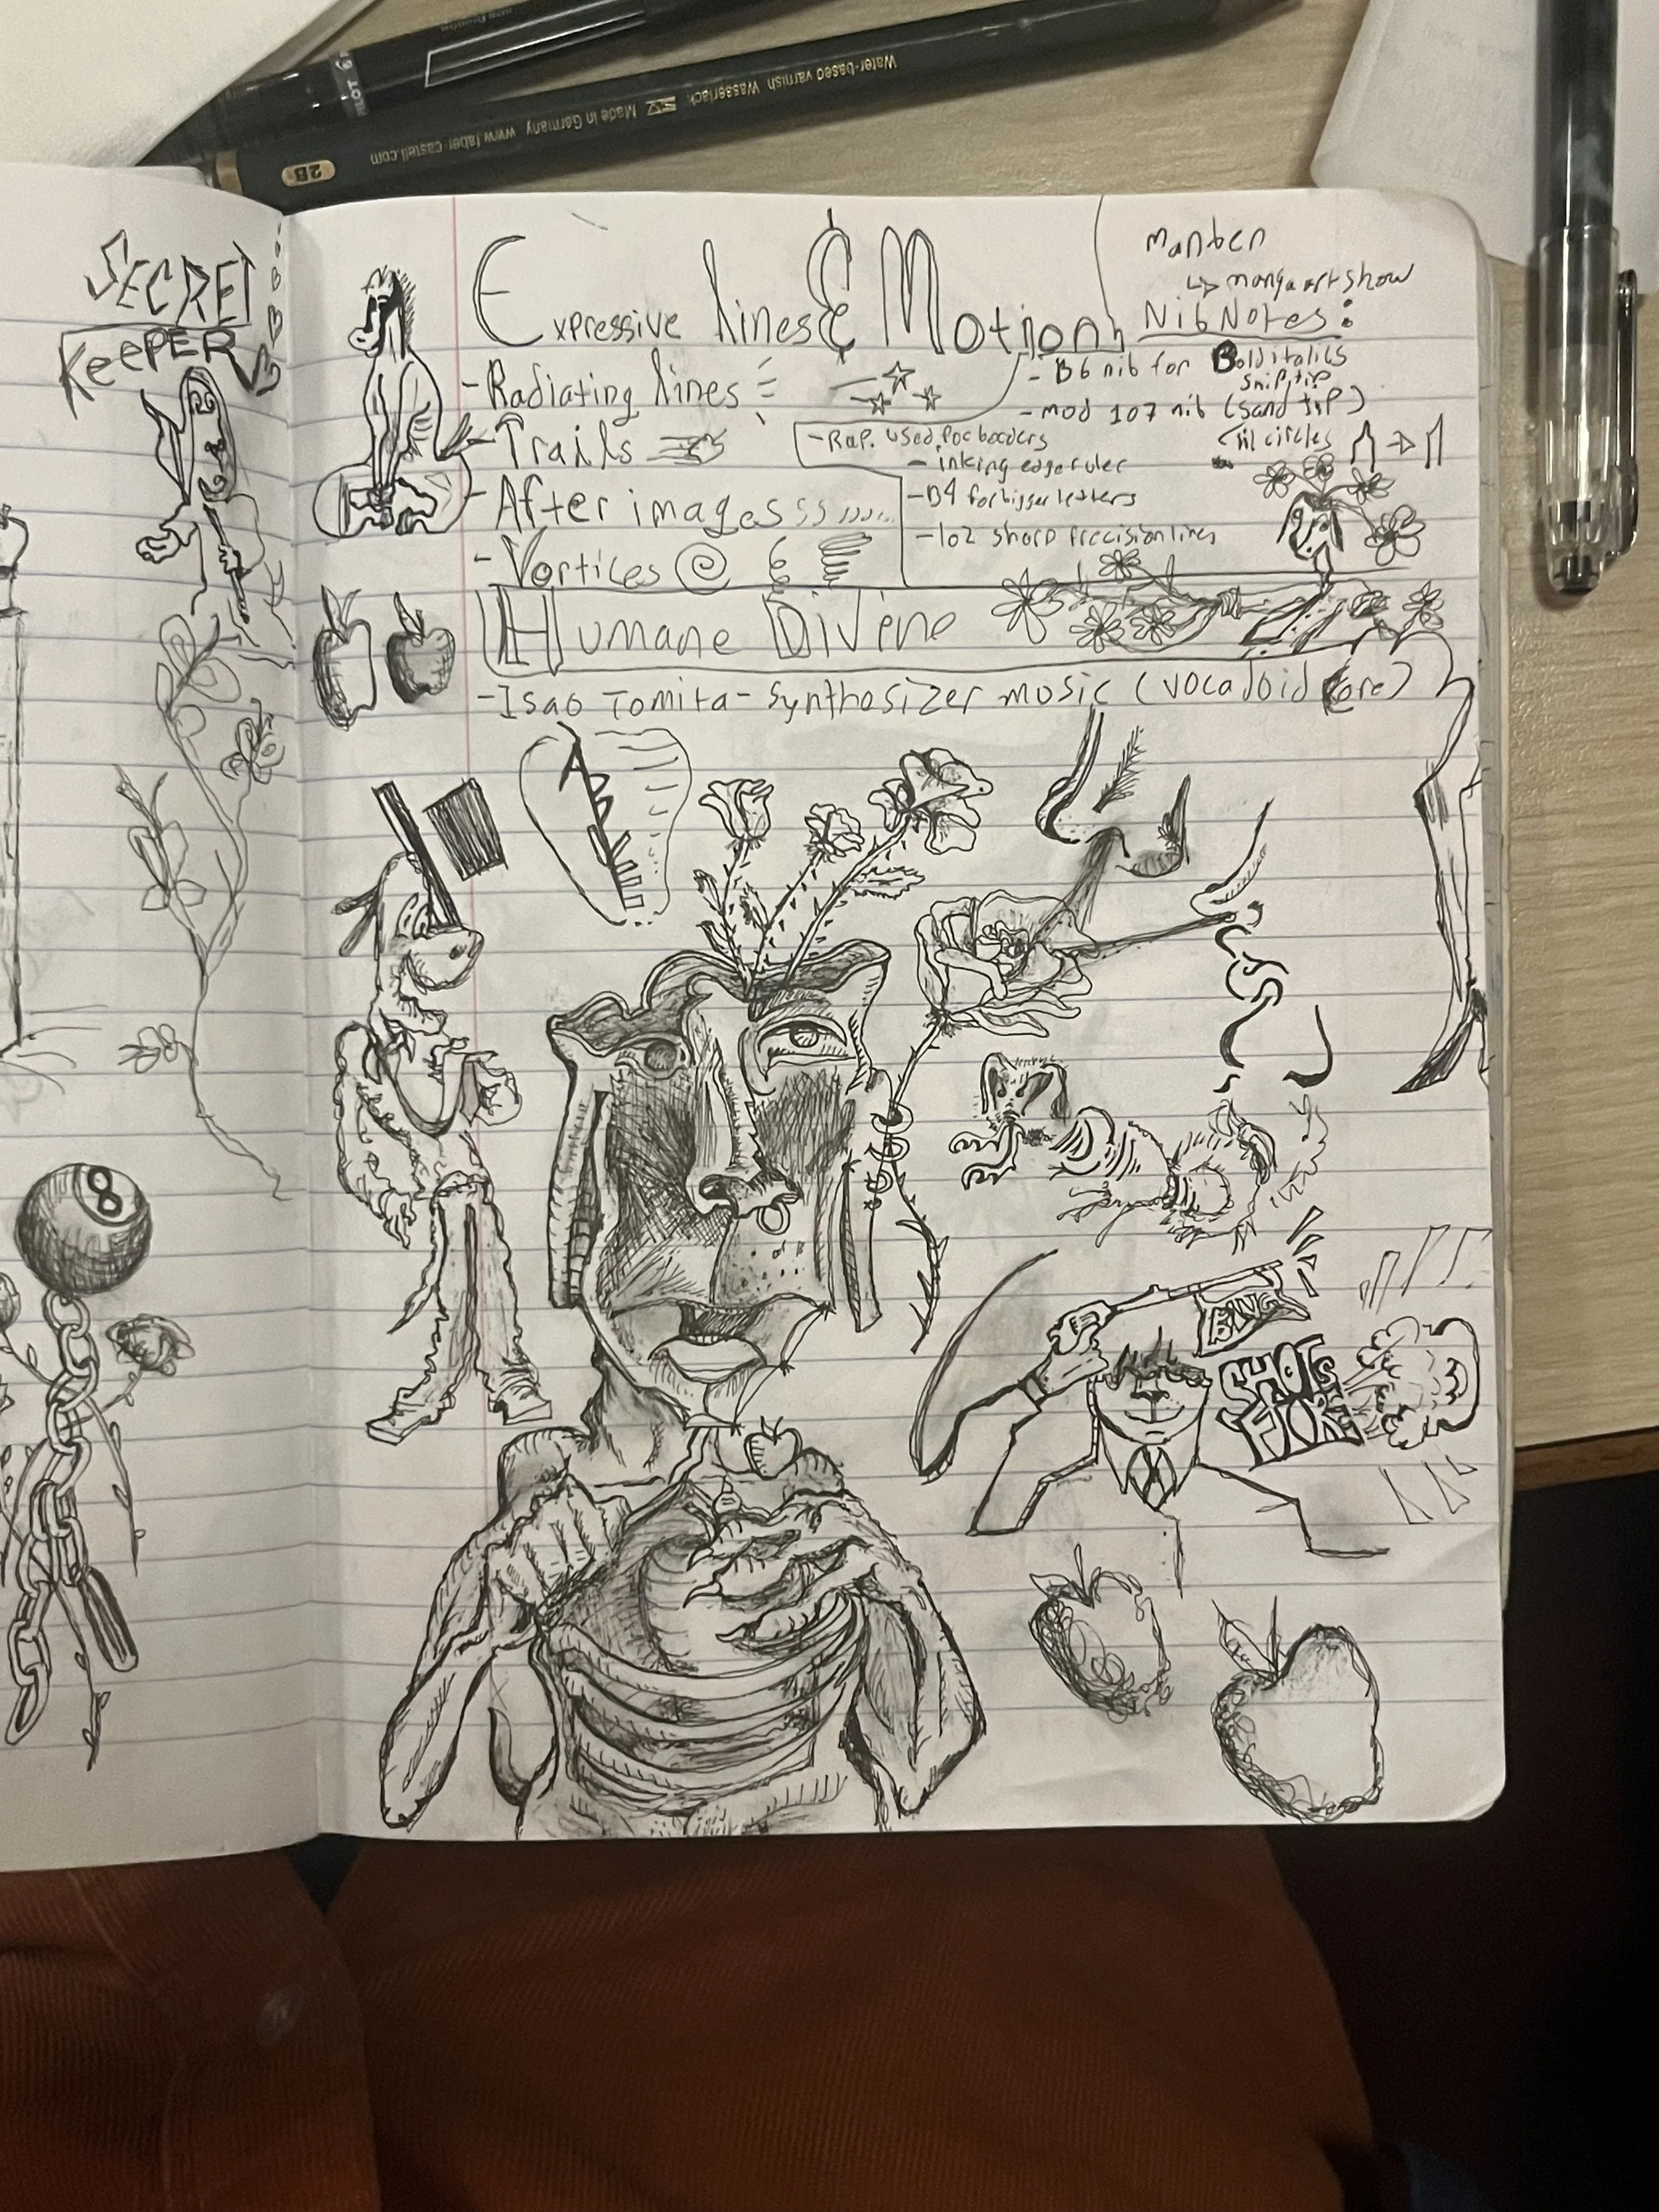 Water-based varnish Wasserlack Made in Germany www.faber-castell.com
2B
PILOT
SECRET
KEEPER
Expressive Lines & Motion
- Radiating Lines
- Trails
- After images
- Vortices
Manben
↳ manga art show
Nib Notes:
- B6 nib for Bold italics
snip tip
- mod 107 nib (sand tip)
circles
- Rap. used for borders
- inking edge ruler
- B4 for bigger letters
- 102 sharp precision lines
Humane Divine
- Isao Tomita - synthesizer music (vocaloid core)
8
BING
SHOTS
FIORE